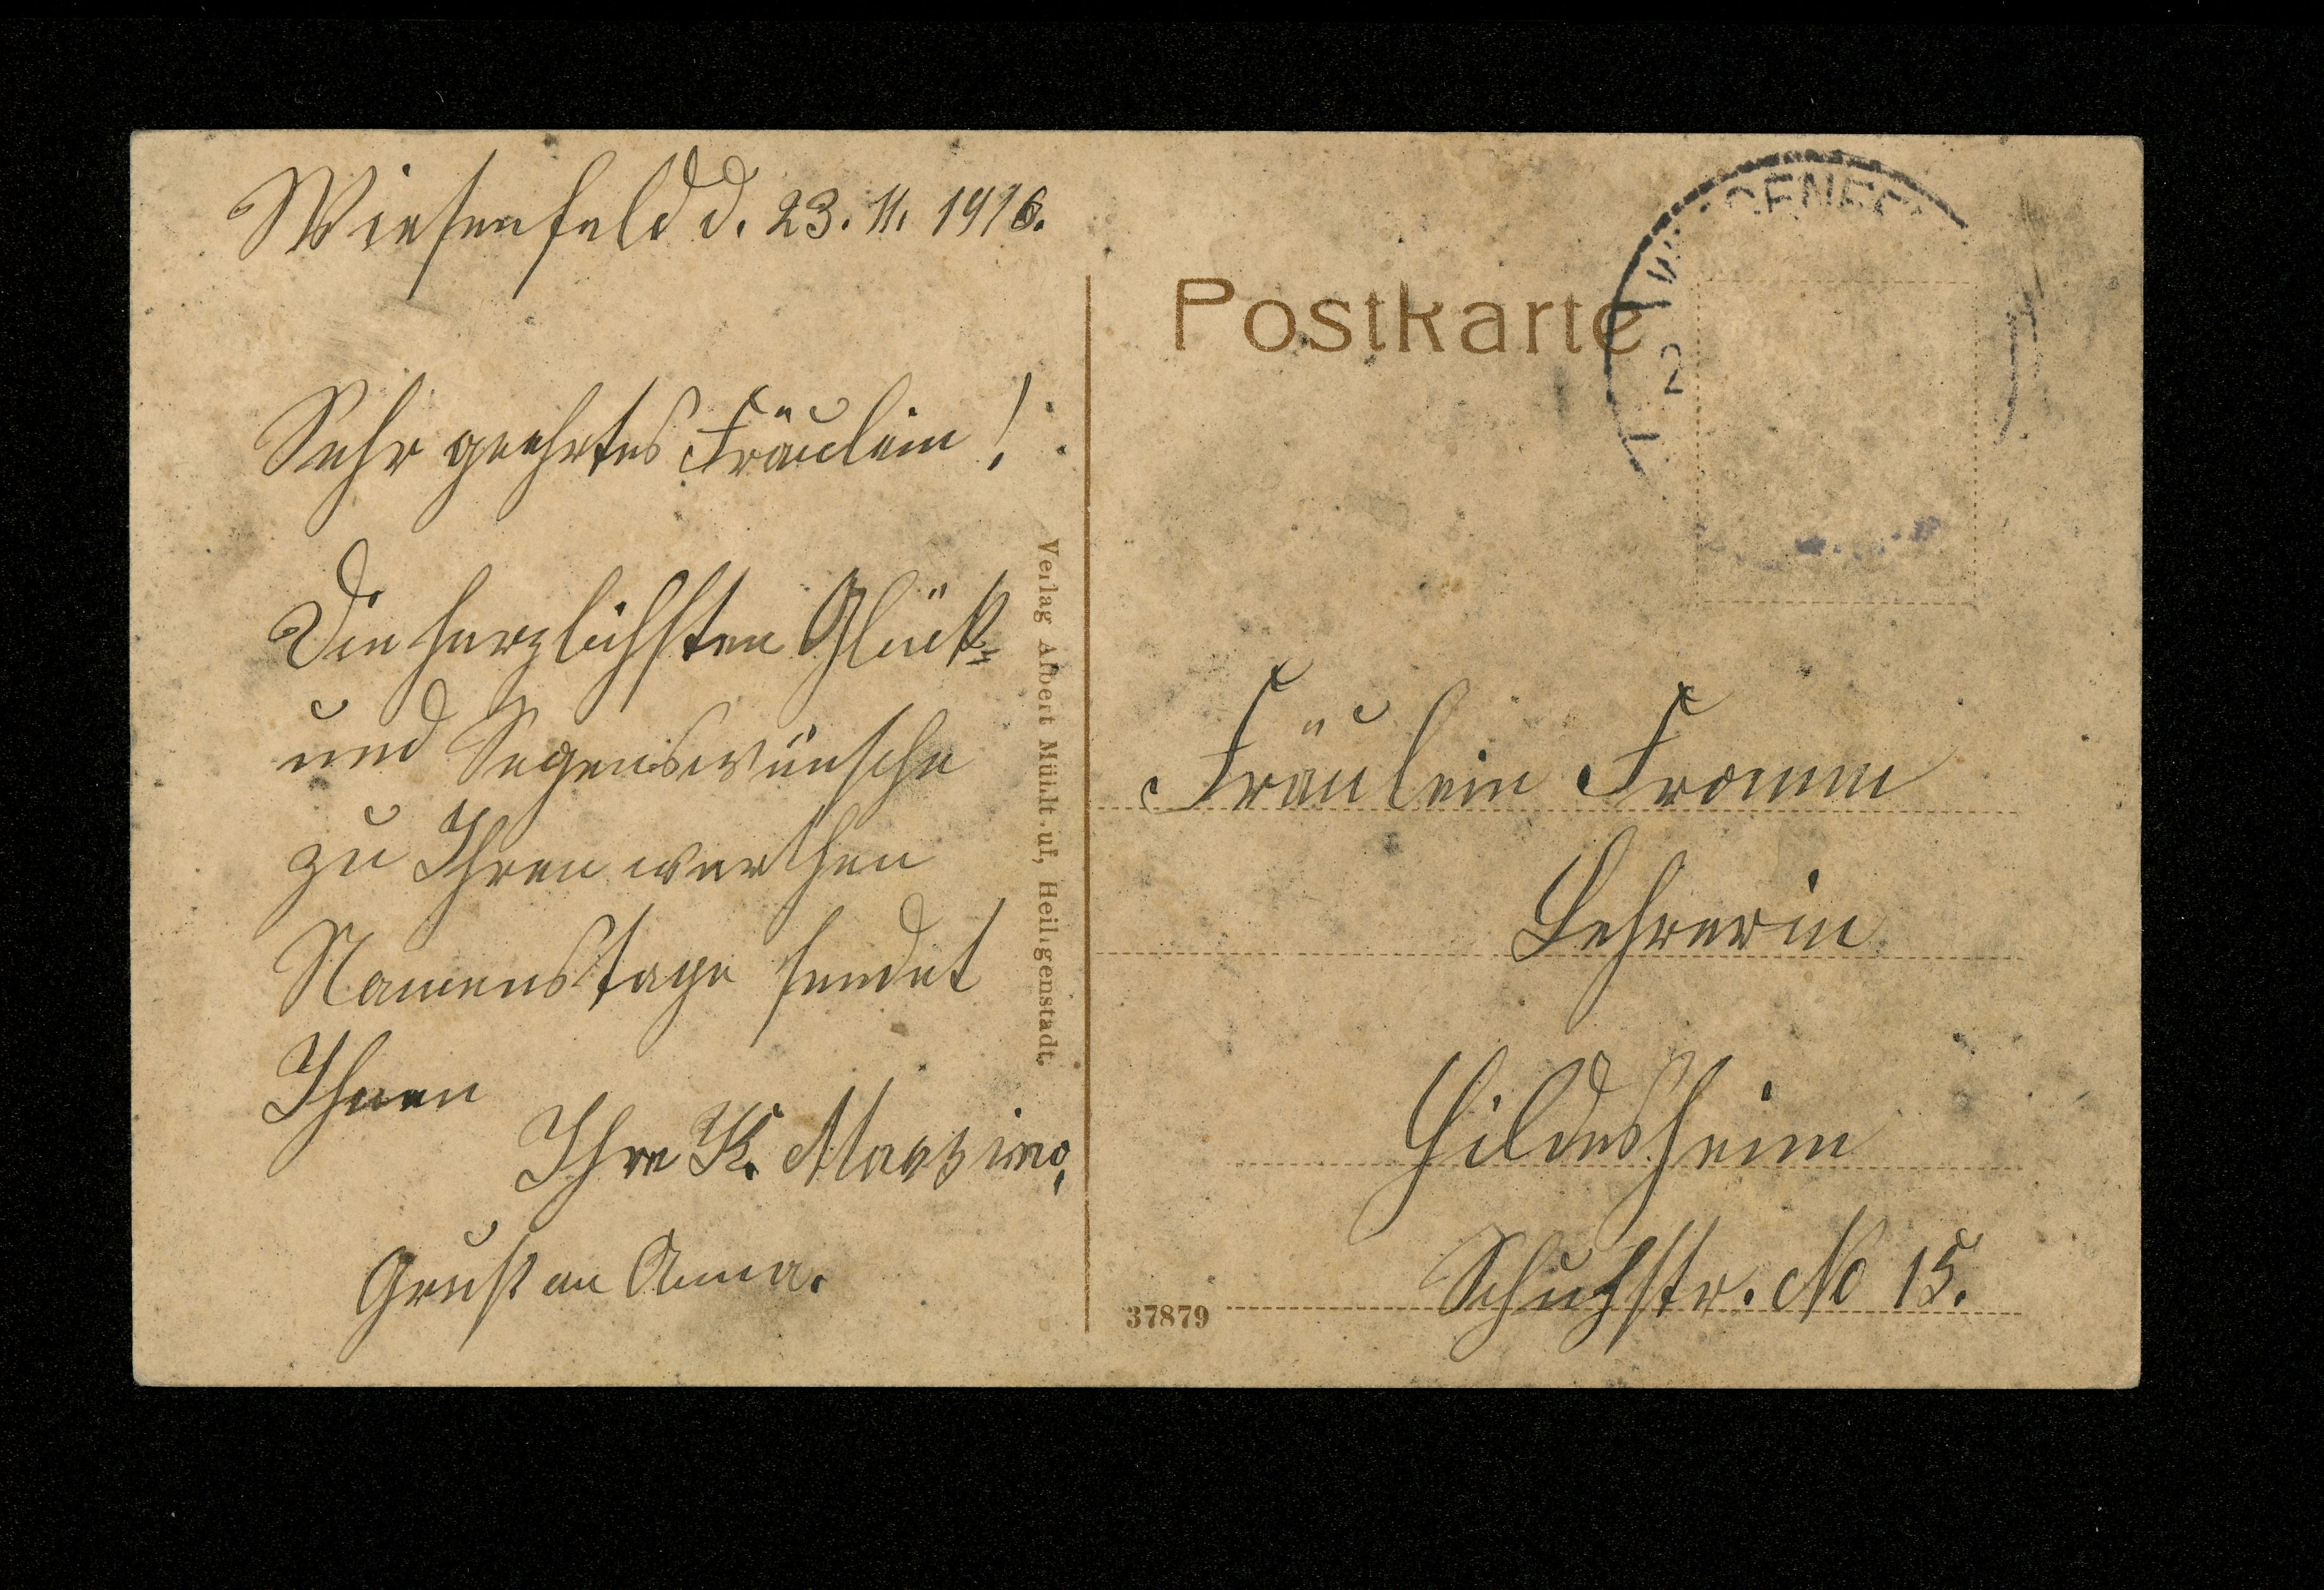 Wiesenfeld d. 23. 11. 1916.
Sehr geehrtes Fräulein!
Die herzlichsten Glück-
und Segenswünsche
zu Ihren werthen
Namenstage sendet
Ihnen
Ihre K.
Gruß an Anna.
Verlag Albert Müller, Heiligenstadt.
Postkarte
Fräulein Fromm
Lehrerin
Hildesheim
Schuhstr. No 15.
37879